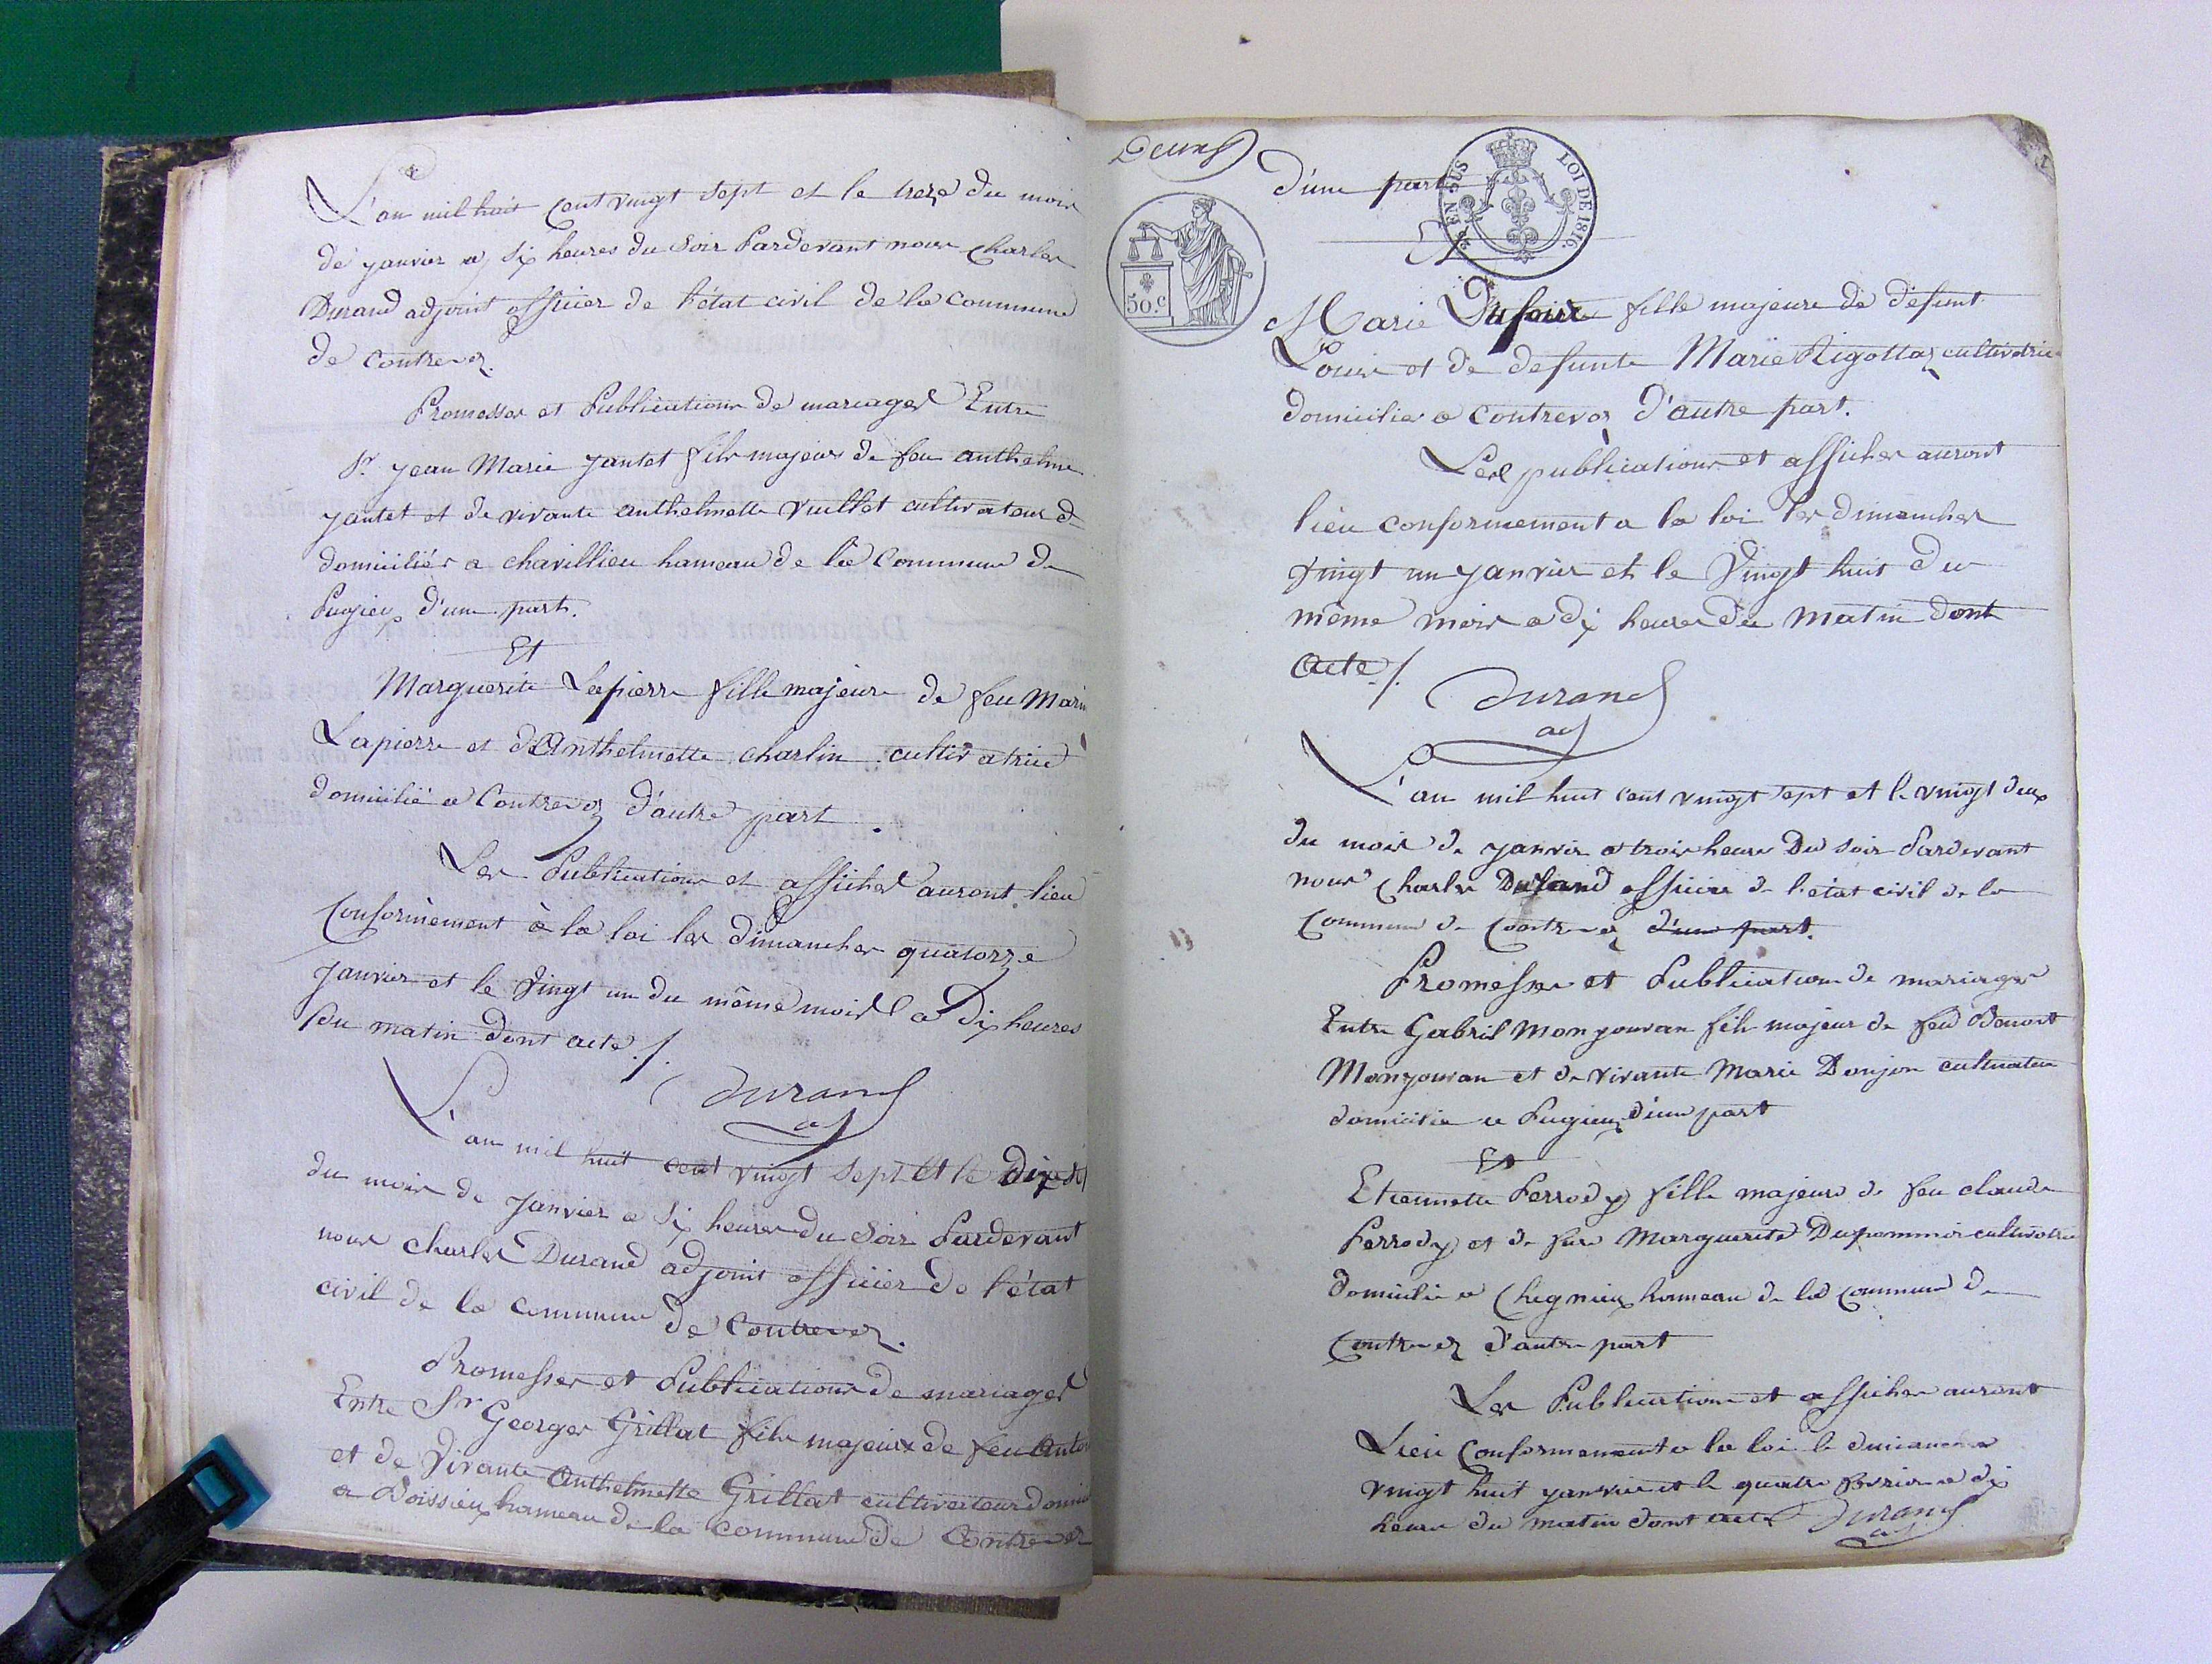 L'an mil huit cent vingt sept et le treze du mois
de janvier a six heures du soir Pardevant nous Charles
Durand adjoint officier de l'état civil de la commune
de Contrevoz.
Promesses et Publications de mariages Entre
Sr. Jean Marie Jantet fils majeur de feu anthelme
Jantet et de vivante anthelmette Vuillot cultivateur
domiciliés a chavillieu hameau de la Commune de
Pugieu d'une part.
Et
Marguerite Lapierre fille majeure de feu Marin
Lapierre et d'Anthelmette charlin cultivatrice
domicilié a Contrevoz d'autre part.
Les Publications et affiches auront lieu
Conformément à la loi les dimanches quatorze
Janvier et le vingt un du même mois a dix heures
Du matin dont acte ./.
Durand
adj
L'an mil huit cent vingt sept et le dix
du mois de Janvier a six heures du soir Pardevant
nous charles Durand adjoint officier de l'état
civil de la commune de Contrevoz.
Promesses et Publications de mariages
Entre Sr Georges Grillat fils majeur de feu
et de vivante Anthelmette Grillat cultivateur
a Boissieu hameau de la commune de Contrevoz
Deux
d'une part
EN SUS
LOI DE 1816.
50.c
Et
Marie Dufour fille majeure de défunt
Louis et de défunte Marie Rigottaz cultivatrice
domicilié a Contrevoz d'autre part.
Les publications et affiches auront
lieu conformement a la loi les dimanches
vingt un janvier et le vingt huit du
même mois a dix heures du matin dont
acte ./.
Durand
adj
L'an mil huit cent vingt sept et le vingt deux
du mois de janvier a trois heures Du soir Pardevant
nous Charles Durand officier de l'état civil de la
Commune de Contrevoz d'une part.
Promesses et Publications de mariages
Entre Gabriel Monjouvan fils majeur de feu Benoit
Monjouvan et de vivante Marie Donjon cultivateur
domicilié a Pugieu d'une part
Et
Etiennette Perrody fille majeure de feu claude
Perrody et de feue Marguerite cultivatrice
domicilié a Chegnieu hameau de la commune de
Contrevoz d'autre part
Les Publications et affiches auront
Lieu Conformement a la loi le dimanche
vingt huit janvier et le quatre fevrier a dix
heures du matin dont acte Durand
adj